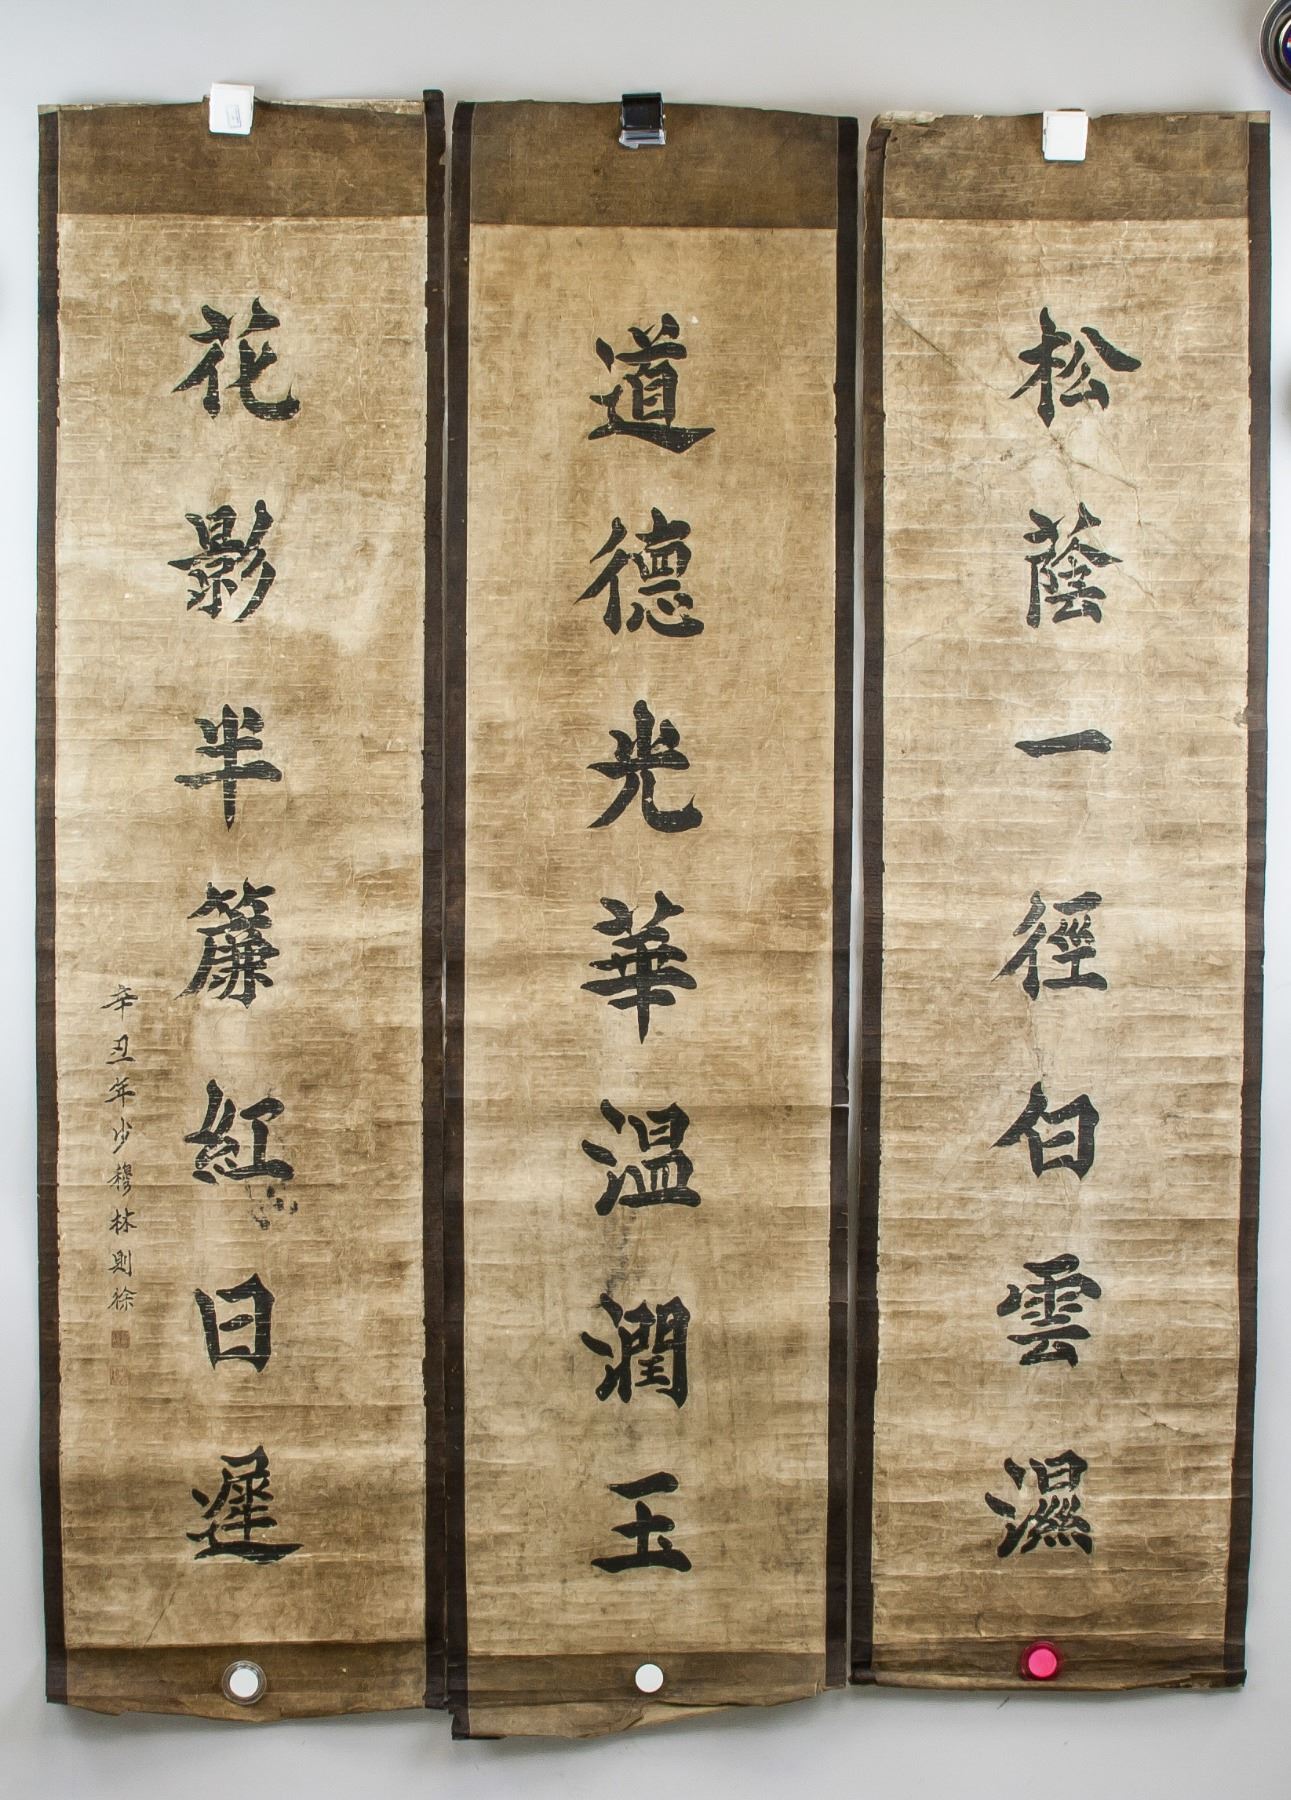 松蔭一徑白雲濕
道德光華温潤玉
花影半簾紅日遲
辛丑年少穆林則徐